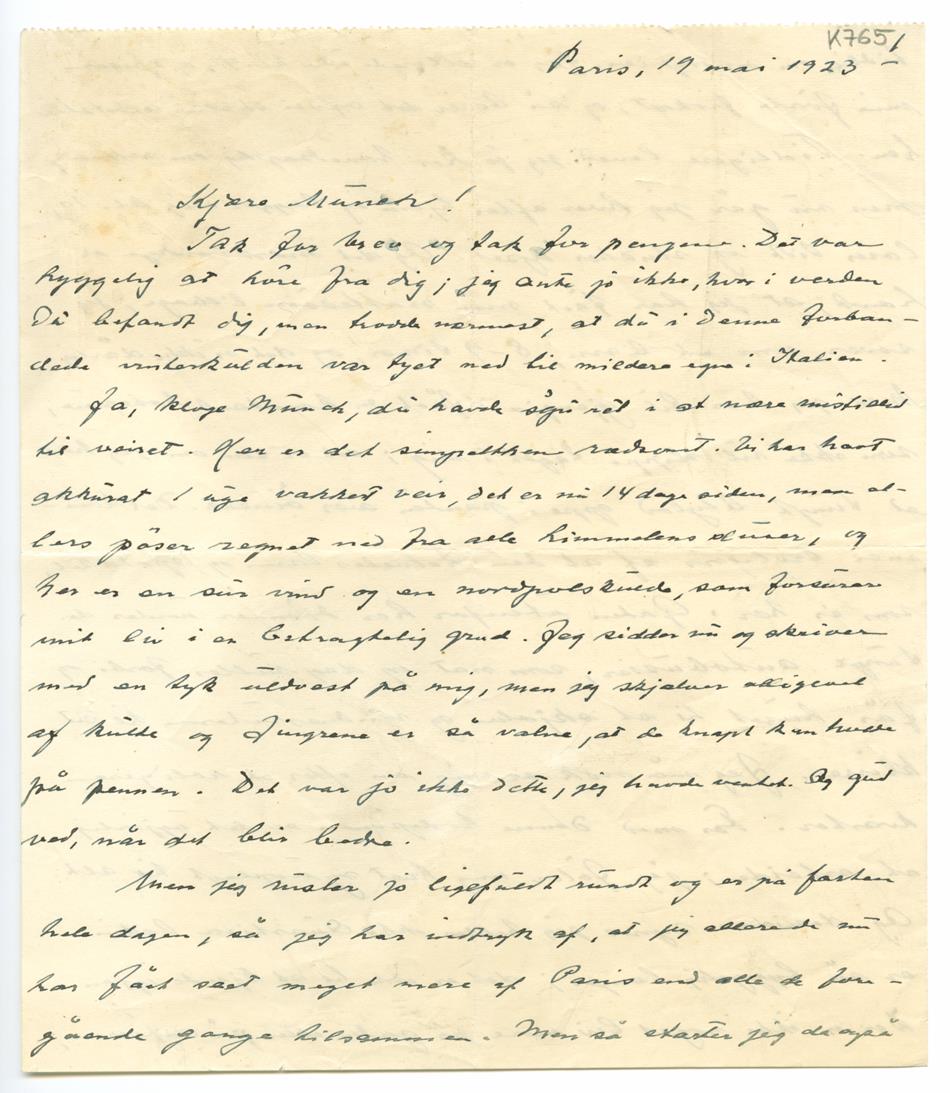 K765 1
Paris, 19 mai 1923
Kjære Munch!
Tak for brev og tak for pengene. Det var
hyggelig at höre fra dig; jeg ante jo ikke, hvor i verden
Du befandt dig, men trodde nærmest, at du i denne forban-
dede vinterkulden var tyet ned til mildere egne i Italien.
Ja, kloge Munch, du havde sgu ret i at nære mistillid
til veiret. Her er det simpelthen rædsomt. Vi har havt
akkurat 1 uge vakkert veir, det er nu 14 dage siden, men el-
lers pöser regnet ned fra alle himmelens sluser, og
her er en sur vind og en nordpolskulde, som forsurer
mit liv i en betragtelig grad. Jeg sidder nu og skriver
med en tyk uldvest på mig, men jeg skjælver alligevel
af kulde og fingrene er så valne, at de knapt kan holde
på pennen. Det var jo ikke dette, jeg havde ventet. Og gud
ved, når det blir bedre.
Men jeg rusler jo ligefuldt rundt og er på farten
hele dagen, så jeg har indtryk af, at jeg allerede nu
har fået seet meget mere af Paris end alle de fore-
gående gange tilsammen. Men så starter jeg da også